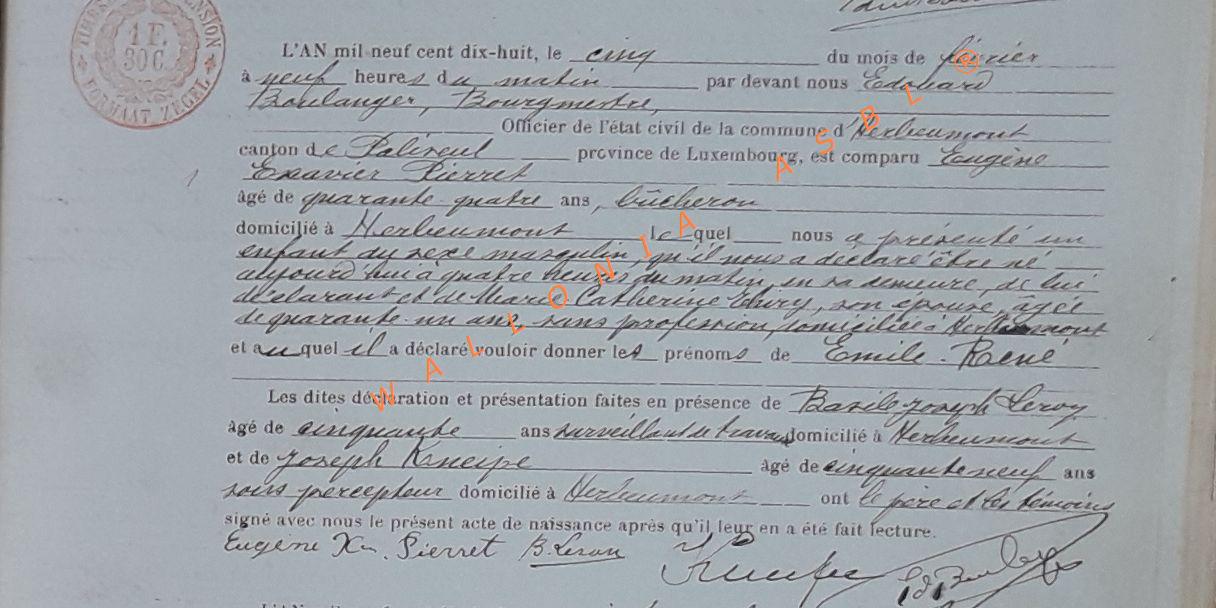 DIMENSION
1 F.
30 C.
FORMAAT ZEGEL
L'AN mil neuf cent dix-huit, le cinq du mois de février
à neuf heures du matin par devant nous Edouard
Boulanger, Bourgmestre,
Officier de l'état civil de la commune d'Herbeumont
canton de Paliseul province de Luxembourg, est comparu Eugène
Exavier Pierret
âgé de quarante-quatre ans, bûcheron
domicilié à Herbeumont lequel nous a présenté un
enfant du sexe masculin, qu'il nous a déclaré être né
aujourd'hui à quatre heures du matin, en sa demeure, de lui
déclarant et de Marie Catherine Thiry, son épouse, âgée
de quarante-un ans, sans profession, domiciliée à Herbeumont
et auquel il a déclaré vouloir donner les prénoms de Emile-René
Les dites déclaration et présentation faites en présence de Basile Joseph Leroy
âgé de cinquante ans surveillant de travaux domicilié à Herbeumont
et de Joseph Kneipe âgé de cinquante neuf ans
sous percepteur domicilié à Herbeumont ont le père et les témoins
signé avec nous le présent acte de naissance après qu'il leur en a été fait lecture.
Eugène Xer. Pierret B. Leroy Kneipe Ed. Boulanger
L'AN
WALLONIA ASBL ®